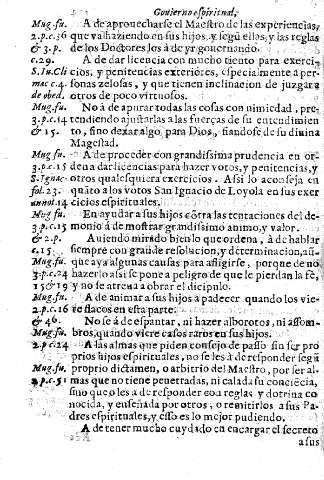 Gouierno espiritual,
Mug. fu. A de aprouecharse el Maestro de las experiencias,
2. p. c. 36 que va haziendo en sus hijos, y segũ ellas, y las reglas
& 3. p. de los Doctores los à de yr gouernando.
c. 29. A de dar licencia con mucho tiento para exerci-
S. Iu. Cli cios, y penitencias exteriores, especialmente a per-
mac c. 4. sonas zelosas, y que tienen inclinacion de juzgarse
de obed. otros de poco virtuosos.
Mug. fu. No à de apurar todas las cosas con nimiedad, pre-
3. p. c. 14 tendiendo ajustarlas a las fuerças de su entendimien
& 15. to, sino dexar algo, para Dios, fiandose de su diuina
Magestad.
Mug. fu. A de proceder con grandissima prudencia en or-
3. p. c. 15 den a dar licencias para hazer votos, y penitencias, y
S. Ignac- otros qualesquiera exercicios. Assi lo aconseja en
fol. 23. quãto a los votos San Ignacio de Loyola en sus exer
annot. 14 cicios espirituales.
Mug. fu. En ayudar a sus hijos cõtra las tentaciones del de-
3. p. c. 15 monio à de mostrar grandissimo animo, y valor.
& 2. p. Auiendo mirado bien lo que ordena, à de hablar
c. 15. siempre con grande resolucion, y determinacion, aũ-
Mug. fu. que aya algunas causas para asfligirse, porque de no
3. p. c. 24 hazerlo assi se pone a peligro de que le pierdan la fè,
15 & 19 y no se atreua a obrar el dicipulo.
Mug. fu. A de animar a sus hijos a padecer quando los vie-
2. p. c. 16 re flacos en esta parte.
& 46. No se à de espantar, ni hazer alborotos, ni assom-
Mug. fu. bros, quando viere casos raros en sus hijos.
2. p. c 24 A las almas que piden consejo de passo sin ser pro
prios hijos espirituales, no se les à de responder segũ
Mug. fu. proprio dictamen, o arbitrio del Maestro, por ser al-
2. p. c. 51 mas que no tiene penetradas, ni calada su conciẽcia,
sino que o les à de responder con reglas y dotrina co
nocida, y enseñada por otros, o remitirlos a sus Pa-
dres espirituales, y esso es lo mejor pudiendo.
A de tener mucho cuydado en encargar el secreto
a sus